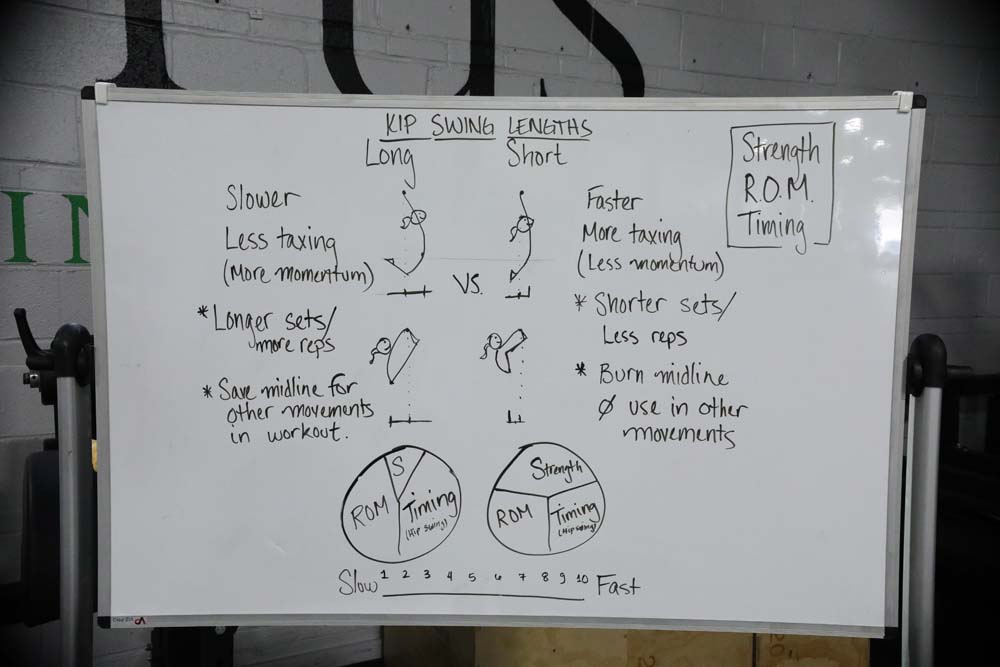 KIP SWING LENGTHS
Long
Short
Slower
Less taxing
(More momentum)
*Longer sets/
more reps
*Save midline for
other movements
in workout.
VS.
Faster
More taxing
(Less momentum)
* Shorter sets/
Less reps
* Burn midline
Ø use in other
movements
Strength
R.O.M.
Timing
S
ROM
Timing
(Hip swing)
Strength
ROM
Timing
(Hip swing)
Slow 1 2 3 4 5 6 7 8 9 10 Fast
IN